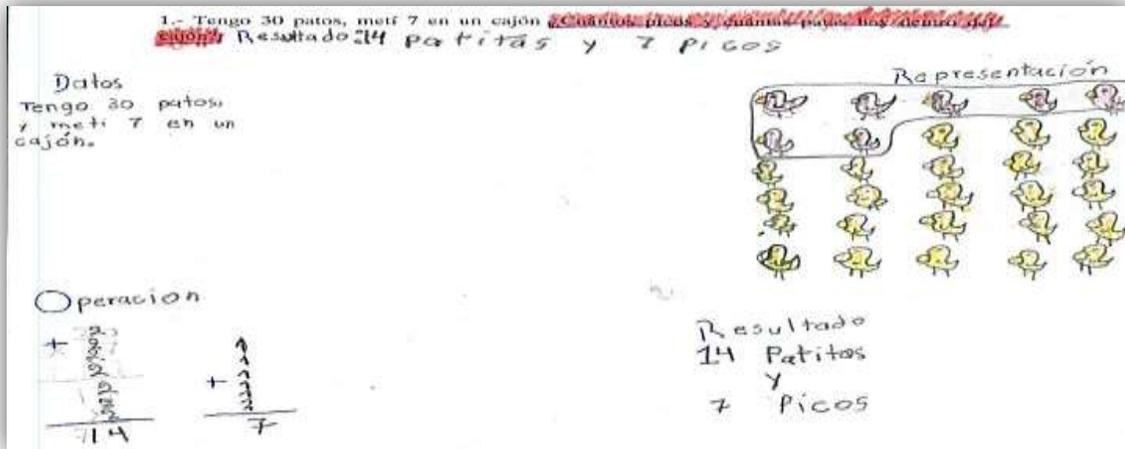 1.- Tengo 30 patos, metí 7 en un cajón ¿Cuántos picos y cuántas patas hay dentro del
cajón? Resultado: 14 patitas y 7 picos
Datos
Tengo 30 patos,
y metí 7 en un
cajón.
Representación
Operacion
+
14
+
7
Resultado
14 Patitas
y
7 Picos